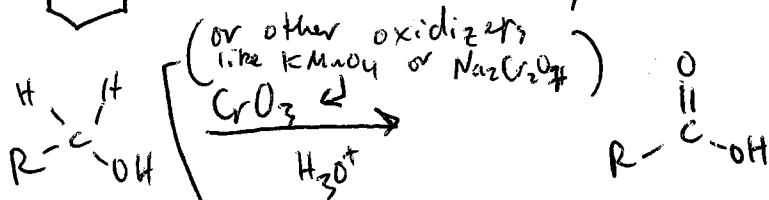 (or other oxidizers
like KMnO4 or Na2Cr2O7)
CrO3
H3O+
H H
R-C-OH
O
R-C-OH